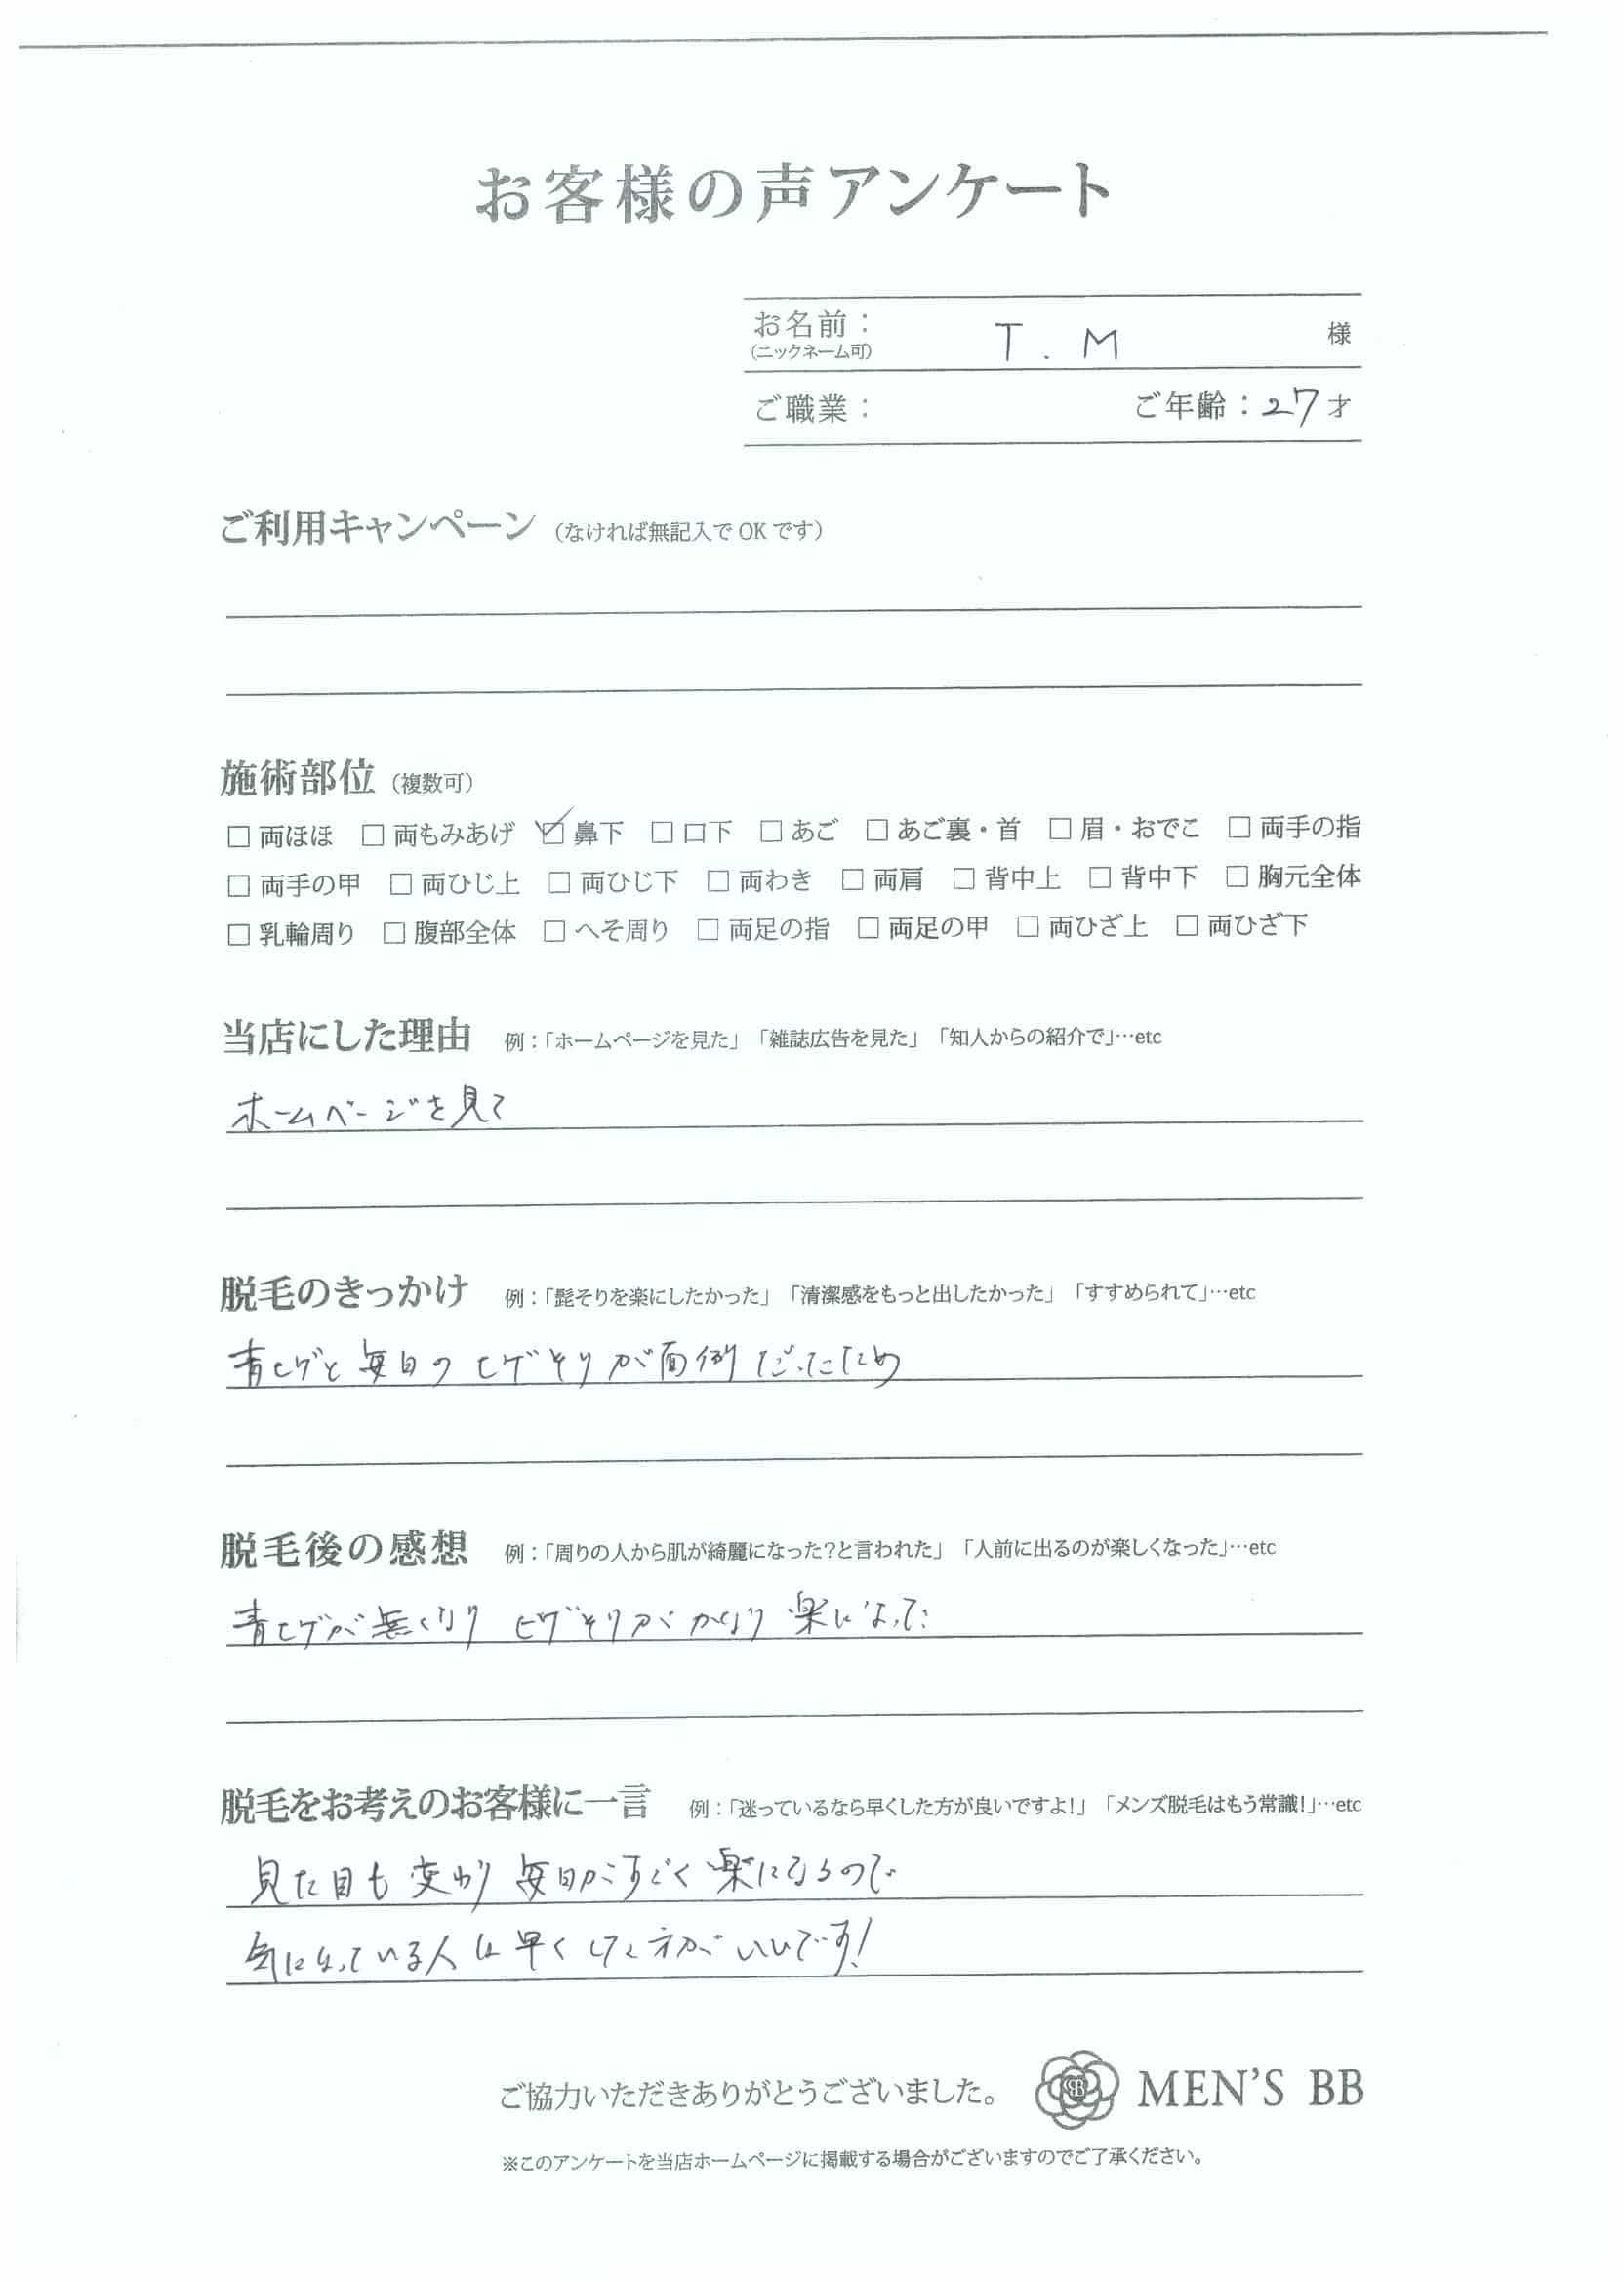 お客様の声アンケート
お名前： T.M 様
(ニックネーム可)
ご職業： ご年齢：27才
ご利用キャンペーン （なければ無記入でOKです）
施術部位（複数可）
□ 両ほほ □ 両もみあげ ☑ 鼻下 □ 口下 □ あご □ あご裏・首 □ 眉・おでこ □ 両手の指
□ 両手の甲 □ 両ひじ上 □ 両ひじ下 □ 両わき □ 両肩 □ 背中上 □ 背中下 □ 胸元全体
□ 乳輪周り □ 腹部全体 □ へそ周り □ 両足の指 □ 両足の甲 □ 両ひざ上 □ 両ひざ下
当店にした理由 例：「ホームページを見た」「雑誌広告を見た」「知人からの紹介で」…etc
ホームページを見て
脱毛のきっかけ 例：「髭そりを楽にしたかった」「清潔感をもっと出したかった」「すすめられて」…etc
青ヒゲと毎日のヒゲそりが面倒だったため
脱毛後の感想 例：「周りの人から肌が綺麗になった?と言われた」「人前に出るのが楽しくなった」…etc
青ヒゲが無くなり ヒゲそりがかなり楽になった
脱毛をお考えのお客様に一言 例：「迷っているなら早くした方が良いですよ!」「メンズ脱毛はもう常識!」…etc
見た目も変わり毎日がすごく楽になるので
気になっている人は早くしたほうがいいです!
ご協力いただきありがとうございました。 MEN'S BB
※このアンケートを当店ホームページに掲載する場合がございますのでご了承ください。